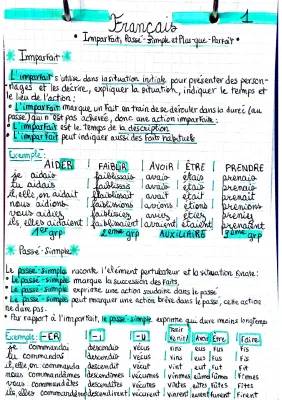 Français
1
• Imparfait, Passé-Simple et Plus-que-Parfait •
Imparfait
L'imparfait s'utilise dans la situation initiale pour présenter des person-
nages et les décrire, expliquer la situation, indiquer le temps et
le lieu de l'action ;
• L'imparfait marque un fait en train de se dérouler dans la durée (au
passé) qui n'est pas achevée, donc une action imparfaite ;
• L'imparfait est le temps de la description
• L'imparfait peut indiquer aussi des faits habituels
Exemple :
AIDER FAIBLIR AVOIR ÊTRE PRENDRE
je aidais faiblissais avais étais prenais
tu aidais faiblissais avais étais prenais
il, elle, on aidait faiblissait avait était prenait
nous aidions faiblissions avions étions prenions
vous aidiez faiblissiez aviez étiez preniez
ils elles aidaient faiblissaient avaient étaient prenaient
1er grp 2ème grp AUXILIAIRE 3ème grp
Passé-Simple
Le passé-simple raconte l'élément perturbateur et la situation finale :
• Le passé-simple marque la succession des faits,
• Le passé-simple exprime une action soudaine dans le passé
• Le passé-simple peut marquer une action brève dans le passé, cette action
ne dure pas.
• Par rapport à l'imparfait, le passé-simple exprime qui dure moins longtemps
Exemple : -ER -I -U Tenir Venir Avoir Être Faire
je commandai descendis vécus vins eus fus fis
tu commandas descendis vécus vins eus fus fis
il, elle, on commanda descendit vécut vint eut fut fit
nous commandâmes descendîmes vécûmes vînmes eûmes fûmes fîmes
vous commandâtes descendîtes vécûtes vîntes eûtes fûtes fîtes
ils elles commandèrent descendirent vécurent vinrent eurent furent firent